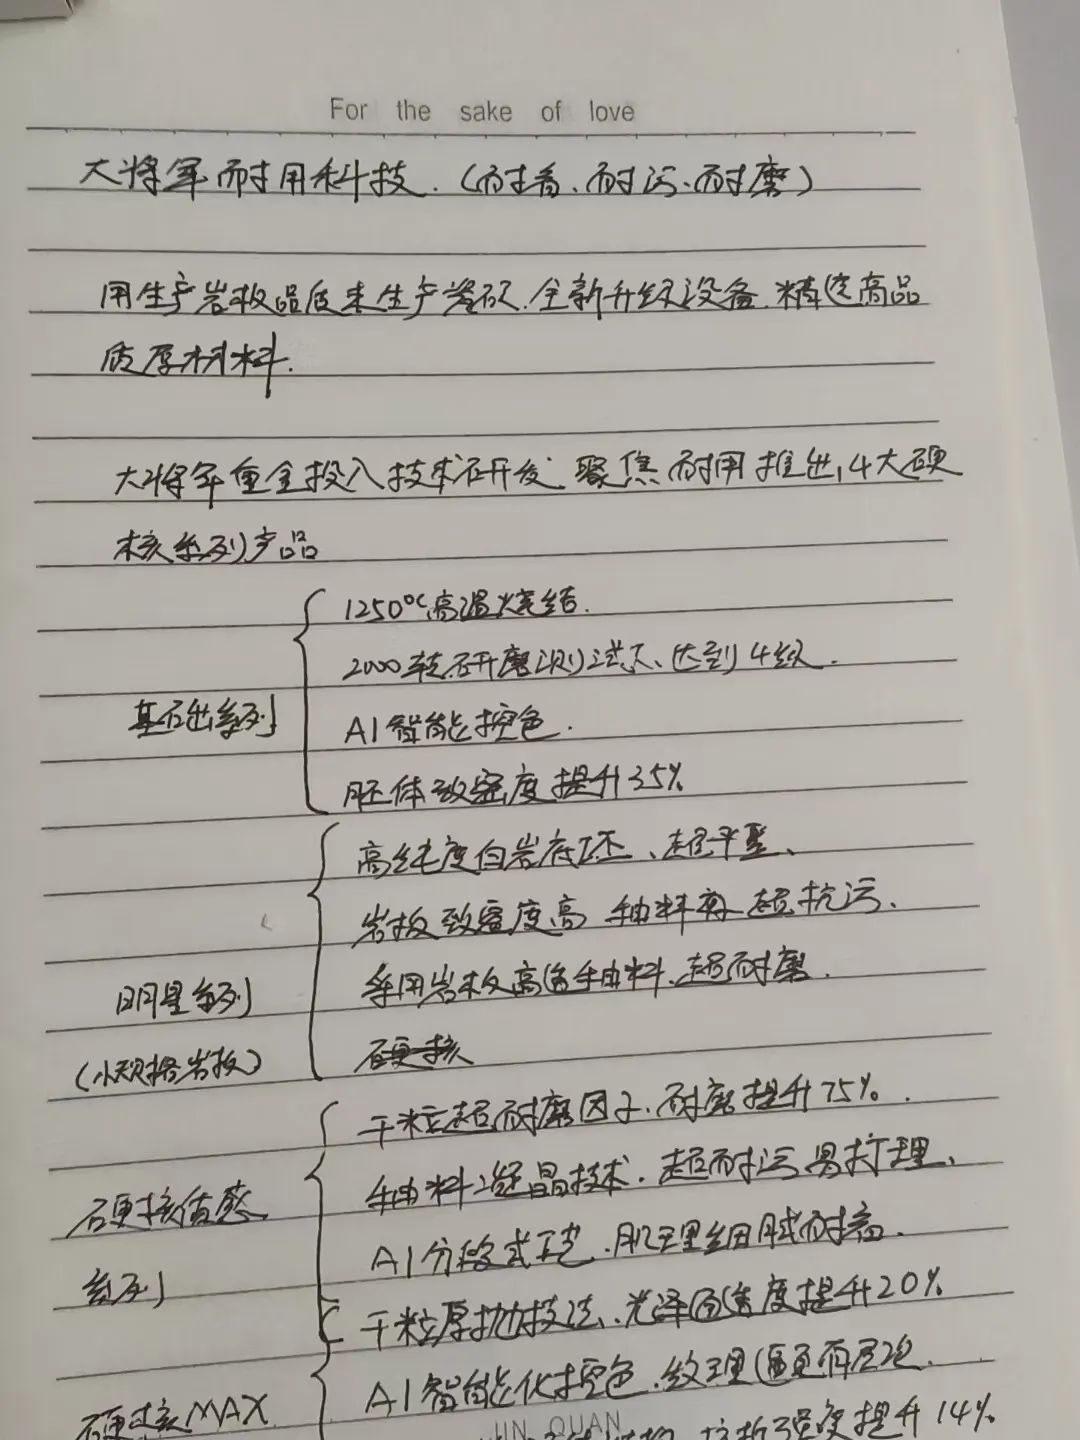 For the sake of love
大将军耐用科技.（耐看、耐污、耐磨）
用生产岩板品质来生产瓷砖.全新升级设备.精选高品
质原材料.
大将军重金投入技术研发.聚焦耐用推出,4大硬
核系列产品
1250℃高温烧结.
2000转研磨测试下、达到4级.
基础系列
AI智能控色.
胚体致密度提升35%
高纯度白岩底坯、超平整、
岩板致密度高 釉料再超抗污.
采用岩板高温釉料.超耐磨.
明星系列
(小规格岩板)
硬核
干粒超耐磨因子.耐磨提升75%.
釉料凝晶技术.超耐污易打理、
硬核质感
AI分段式工艺.肌理细腻耐看.
系列
干粒厚抛技法、光泽度提升20%
AI智能化控色.纹理
硬核MAX
JIN QUAN
抗折强度提升14%